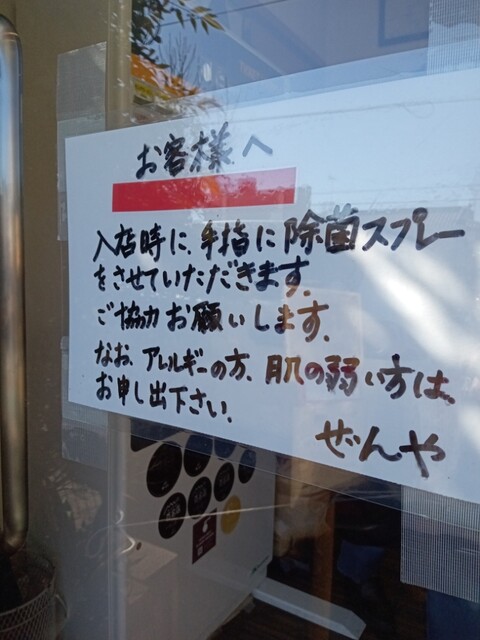 お客様へ
入店時に、手指に除菌スプレー
をさせていただきます。
ご協力お願いします。
なお、アレルギーの方、肌の弱い方は、
お申し出下さい。
ぜんや